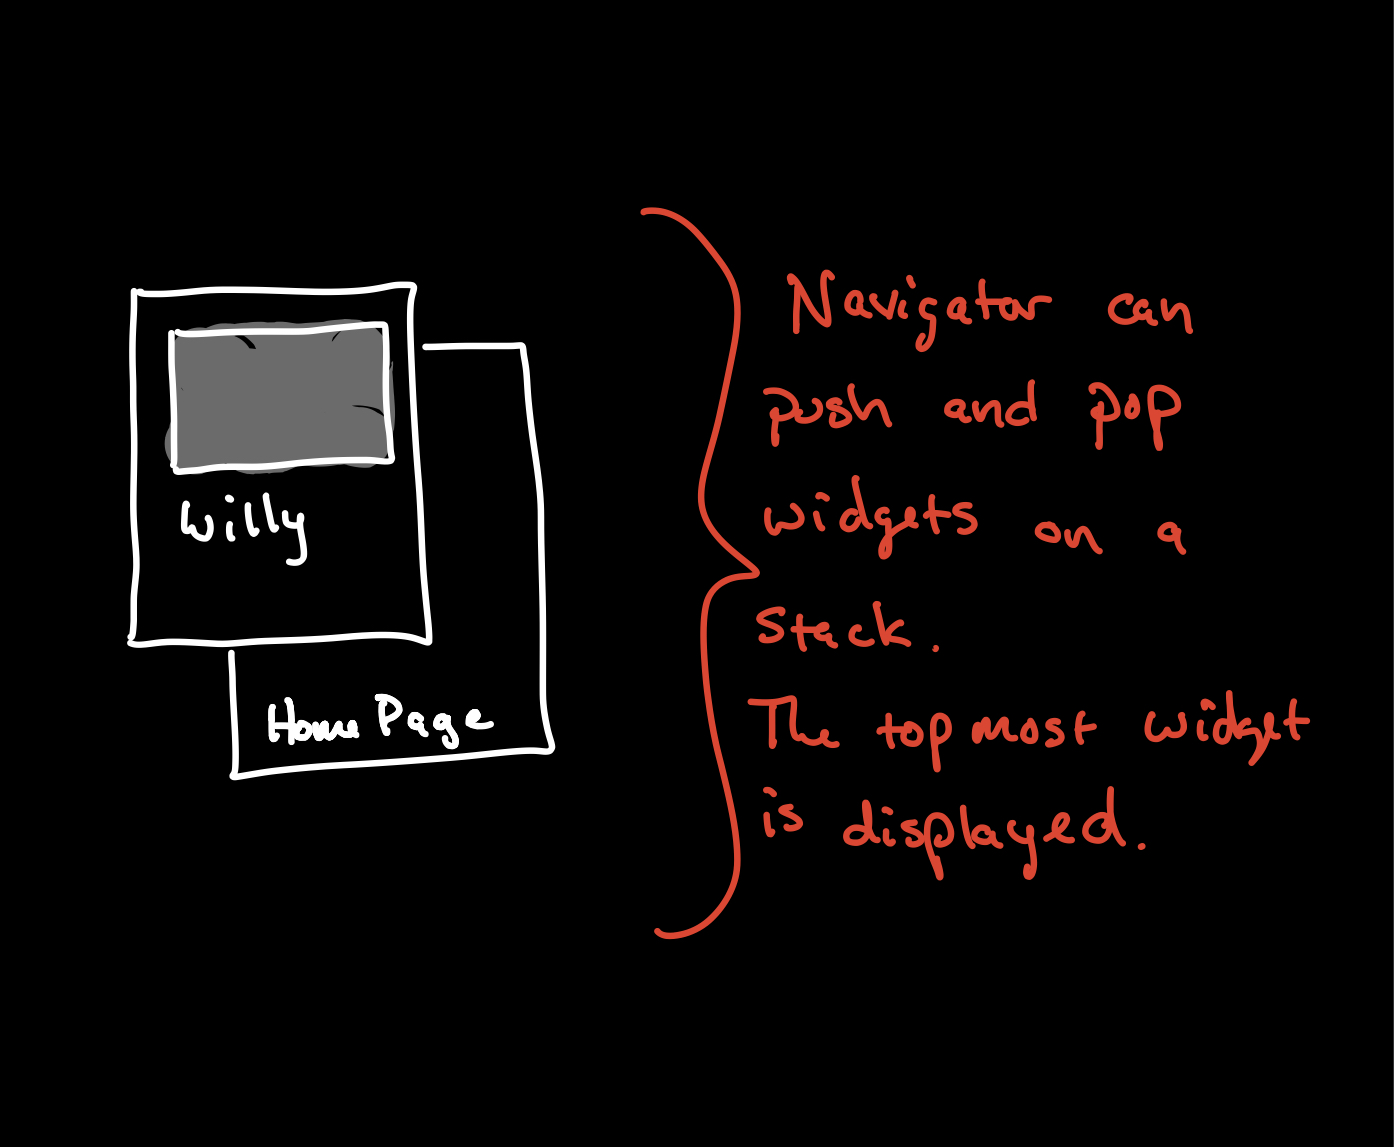 Willy
Home Page
Navigator can
push and pop
widgets on a
Stack.
The top most widget
is displayed.